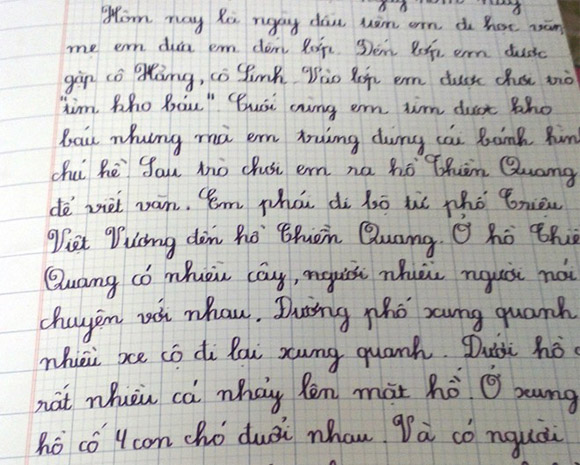 Hôm nay là ngày đầu uên em đi học văn
mẹ em đưa em đến lớp. Đến lớp em được
gặp cô Hằng, cô Linh. Vào lớp em được chơi trò
"tìm kho báu" Cuối cùng em tìm được kho
báu nhưng mà em trúng đúng cái bánh hìn
chú hề. Sau trò chơi em ra hồ Thiền Quang
để viết văn. Em phải đi bộ từ phố Triệu
Việt Vương đến hồ Thiền Quang. Ở hồ Thiề
Quang có nhiều cây, người nhiều người nói
chuyện với nhau. Đường phố xung quanh
nhiều xe cộ đi lại xung quanh. Dưới hồ c
rất nhiều cá nhảy lên mặt hồ. Ở xung
hồ cố 4 con chó đuổi nhau. Và có người